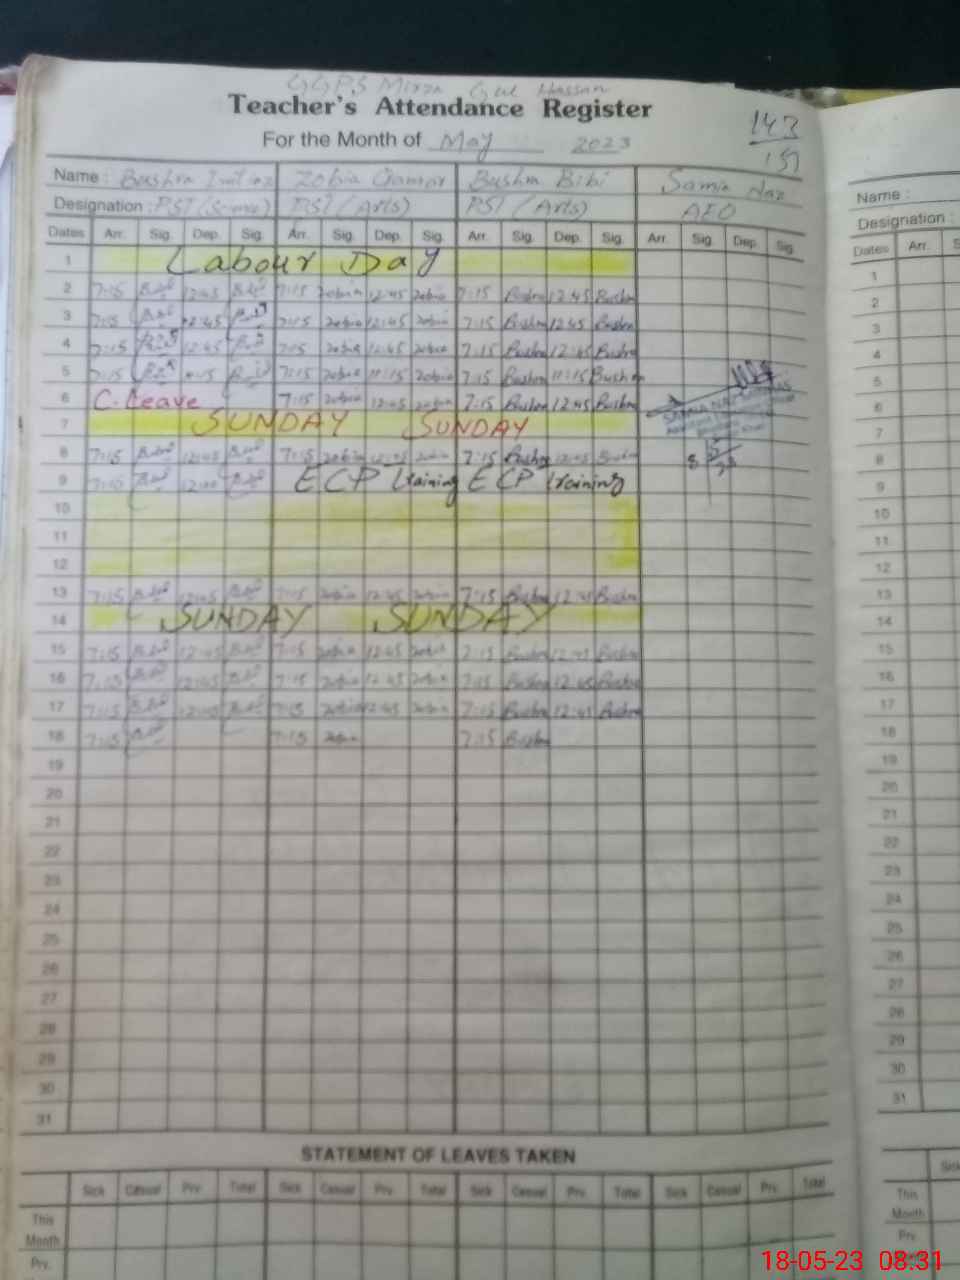 GGPS Mirza Gul Hassan
Teacher's Attendance Register
143
For the Month of May 2023
151
Name : Bushra Imtiaz Zobia Qamar Bushra Bibi Samia Naz
Designation : PST (Science) PST (Arts) PST (Arts) AEO
Dates Arr. Sig. Dep. Sig. Arr. Sig. Dep. Sig. Arr. Sig. Dep. Sig. Arr. Sig. Dep. Sig.
1 Labour Day
2 7:15 12:45 7:15 zobia 12:45 zobia 7:15 Bushra 12:45 Bushra
3 7:15 12:45 7:15 zobia 12:45 zobia 7:15 Bushra 12:45 Bushra
4 7:15 12:45 7:15 zobia 12:45 zobia 7:15 Bushra 12:45 Bushra
5 7:15 7:15 zobia 11:15 zobia 7:15 Bushra 11:15 Bushra
6 C. Leave 7:15 zobia 12:45 zobia 7:15 Bushra 12:45 Bushra
SAMIA NAZ
7 SUNDAY SUNDAY
8 7:15 12:45 7:15 zobia 12:45 zobia 7:15 Bushra 12:45 Bushra
9 7:15 ECP training ECP training
10
11
12
13 7:15 12:45 7:15 zobia 12:45 zobia 7:15 Bushra 12:45 Bushra
14 SUNDAY SUNDAY
15 7:15 12:45 7:15 zobia 12:45 zobia 7:15 Bushra 12:45 Bushra
16 7:15 12:45 7:15 zobia 12:45 zobia 7:15 Bushra 12:45 Bushra
17 7:15 12:45 7:15 zobia 12:45 zobia 7:15 Bushra 12:45 Bushra
18 7:15 7:15 zobia 7:15 Bushra
19
20
21
22
23
24
25
26
27
28
29
30
31
STATEMENT OF LEAVES TAKEN
Sick Casual Prv. Total Sick Casual Prv. Total Sick Casual Prv. Total Sick Casual Prv. Total
This Month
Prv.
Name :
Designation :
Dates Arr. S
1
2
3
4
5
6
7
8
9
10
11
12
13
14
15
16
17
18
19
20
21
22
23
24
25
26
27
28
29
30
31
Sick
This Month
Prv.
18-05-23 08:31